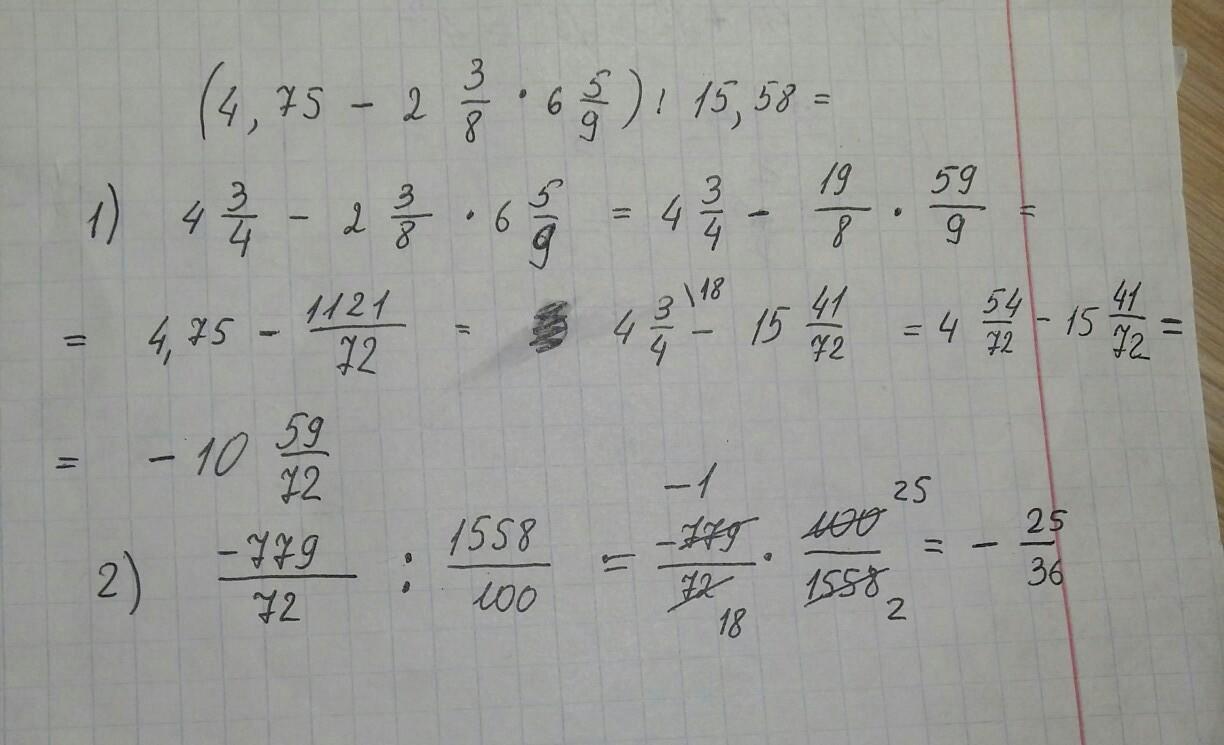 (4,75 - 2 3/8 · 6 5/9) : 15,58 =
1) 4 3/4 - 2 3/8 · 6 5/9 = 4 3/4 - 19/8 · 59/9 =
= 4,75 - 1121/72 = 4 3/4 \18 - 15 41/72 = 4 54/72 - 15 41/72 =
= - 10 59/72
2) -779/72 : 1558/100 = -779/72 · 100/1558 = - 25/36
-1 25
18 2